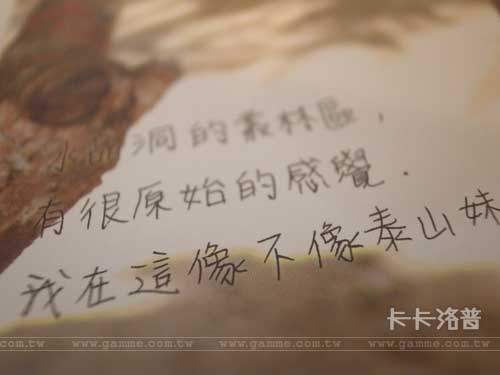 洞的叢林區，
有很原始的感覺．
我在這像不像泰山妹
卡卡洛普
www.gamme.com.tw www.gamme.com.tw www.gamme.com.tw